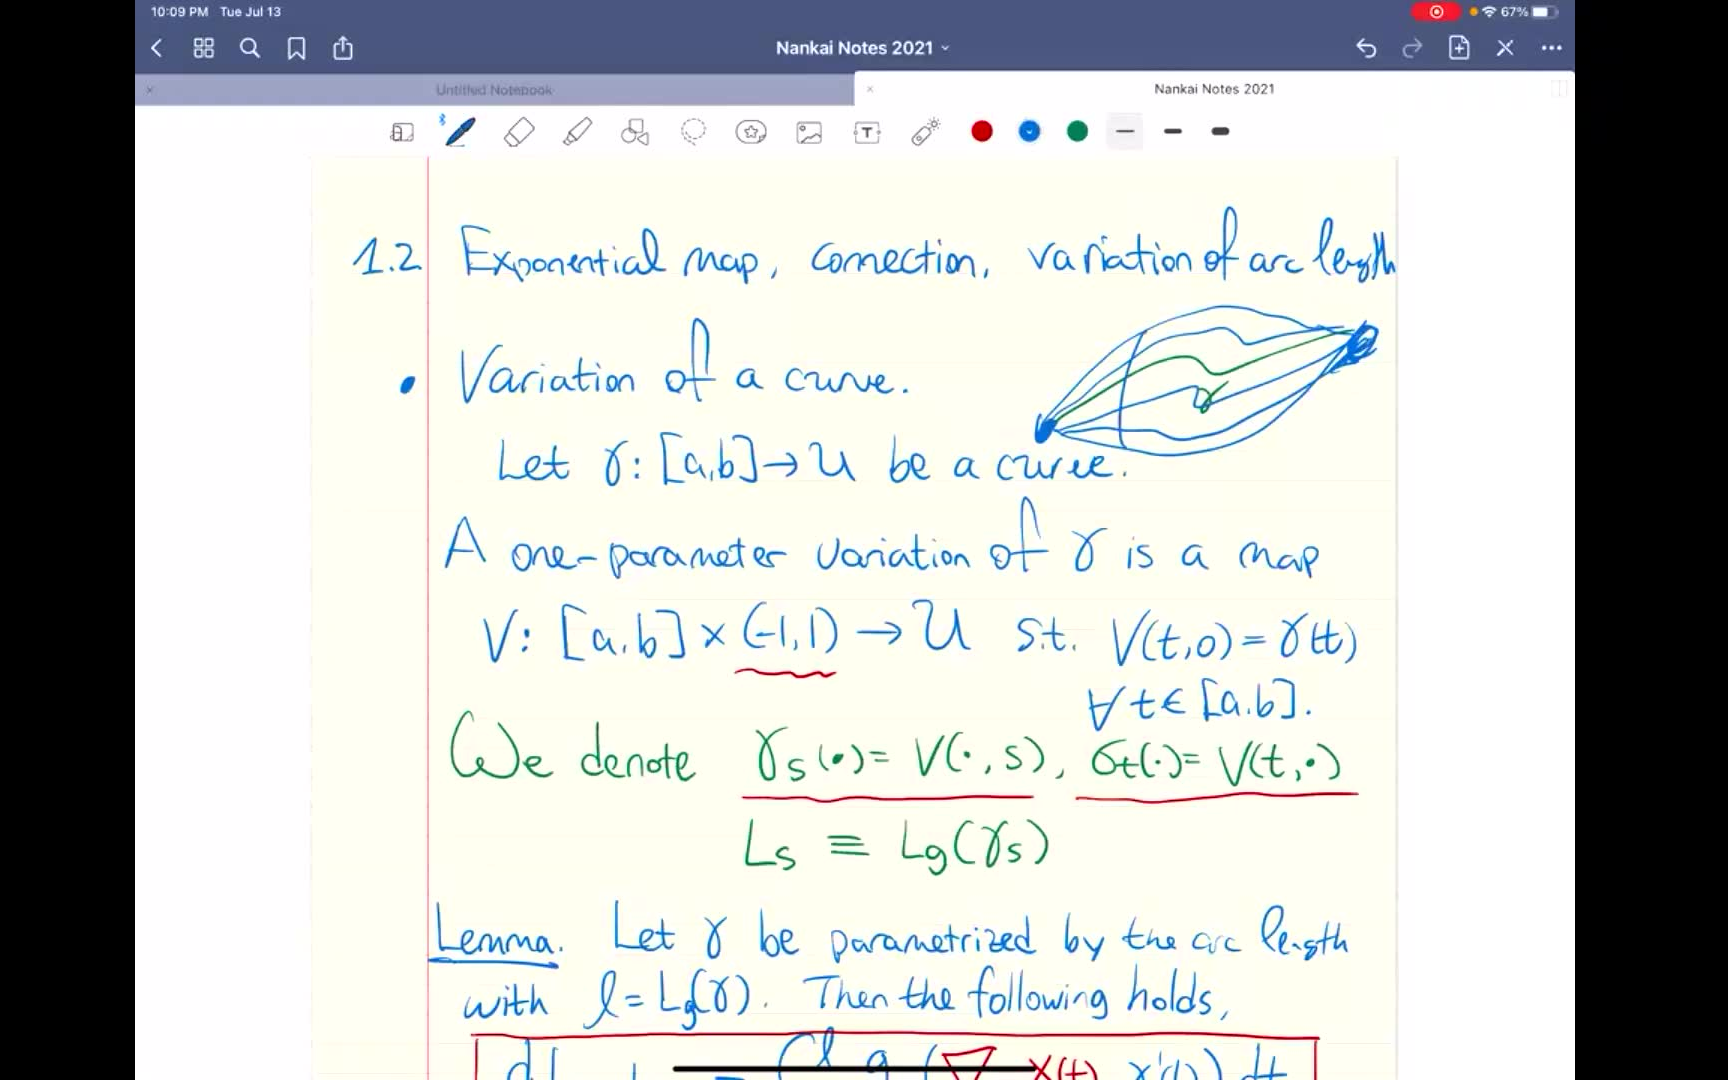 10:09 PM Tue Jul 13
67%
Nankai Notes 2021
Untitled Notebook
Nankai Notes 2021
1.2 Exponential map, connection, variation of arc length
• Variation of a curve.
Let γ: [a,b] → U be a curve.
A one-parameter variation of γ is a map
V: [a,b] × (-1,1) → U s.t. V(t,0) = γ(t)
∀ t ∈ [a,b].
We denote γs(•) = V(•,s), σt(•) = V(t,•)
Ls ≡ Lg(γs)
Lemma. Let γ be parametrized by the arc length
with l = Lg(γ). Then the following holds,